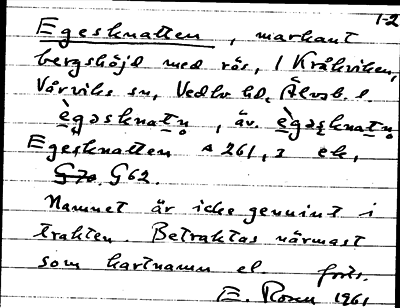 1-2
Egesknatten, markant
bergshöjd med rös, i Kråkviken,
Vårviks sn, Vedbo hd, Älvsb. l.
è̱gəsknatn̥, äv. è̱gəs̱knatn̥
Egesknatten ek,
G 62.
Namnet är icke genuint i
trakten. Betraktas närmast
som kartnamn el. forts.
E. Rosen 1961